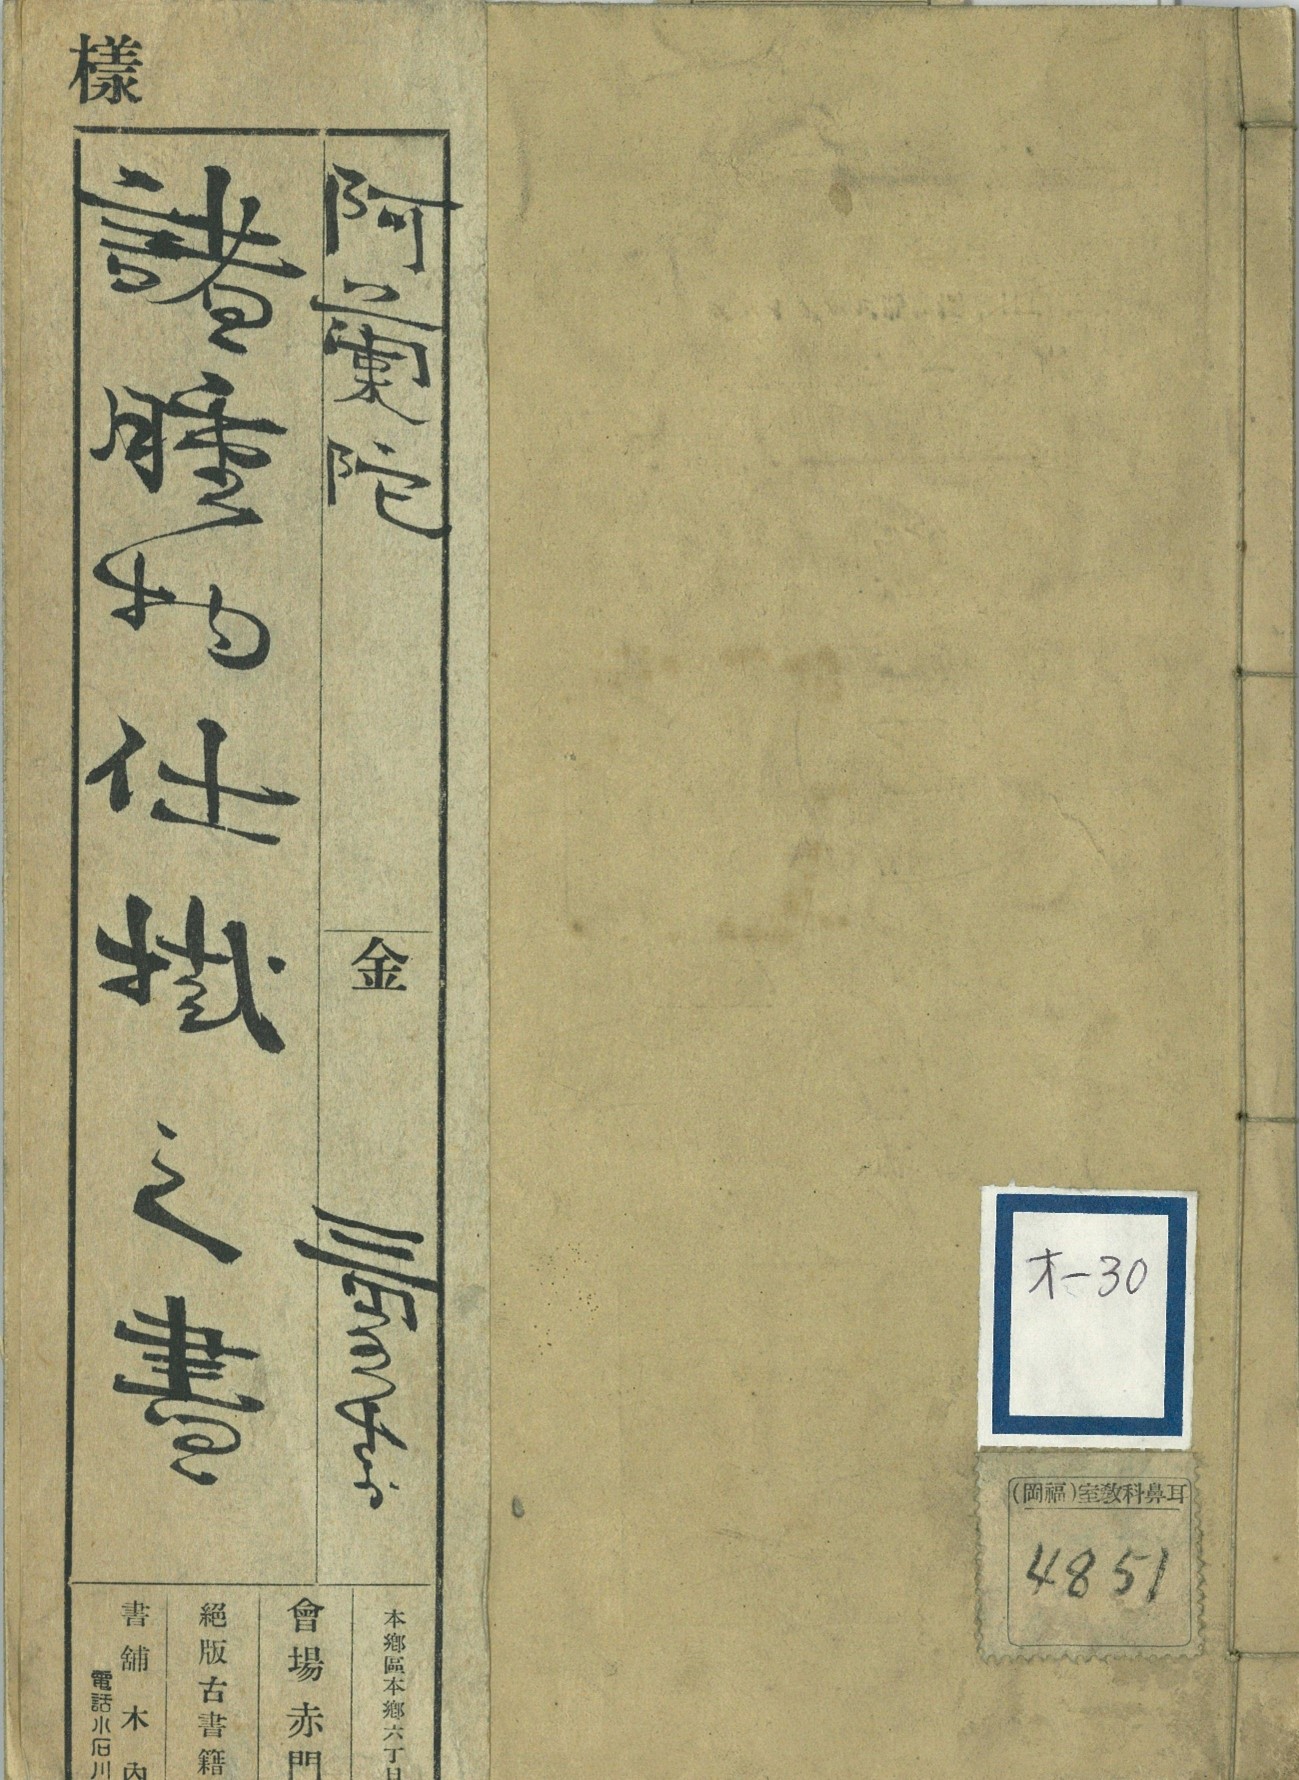 様
阿蘭陀
諸腫物仕掛之書
金
本郷區本郷六丁目
會場赤門
絕版古書籍
書舗木內
電話小石川
オー30
耳鼻科教室(福岡)
4851